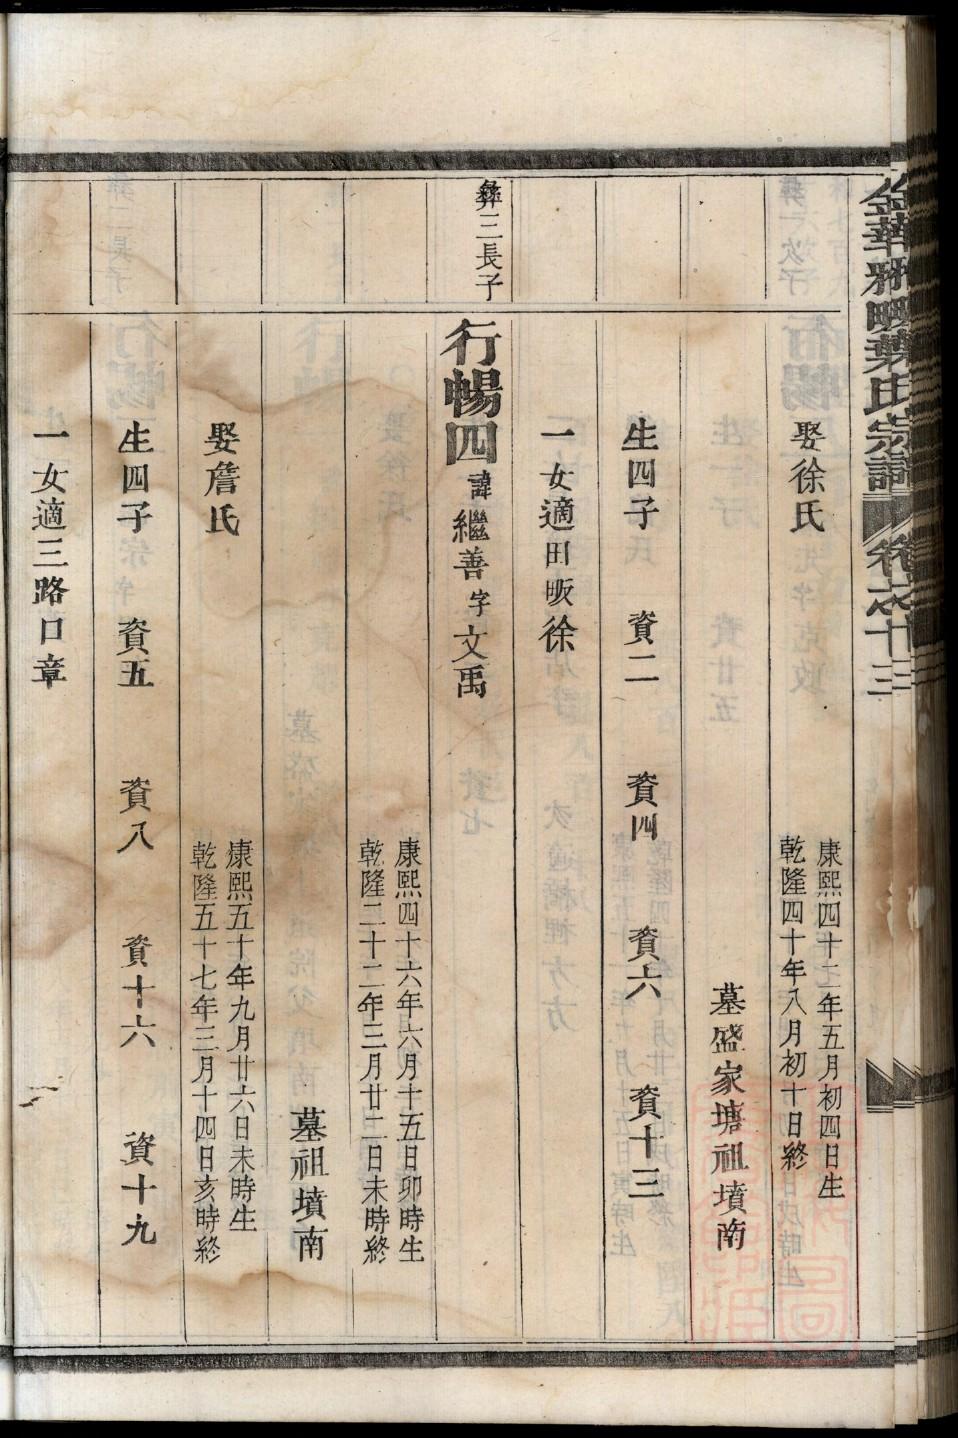 金華雅畈葉氏宗譜 卷之十三
娶徐氏
康熙四十二年五月初四日生
乾隆四十年八月初十日終
墓盛家塘祖墳南
生四子 資二 資四 資六 資十三
一女適田畈徐
彝三長子
行暢四 諱繼善字文禹
康熙四十六年六月十五日卯時生
乾隆二十二年三月廿二日未時終
墓祖墳南
娶詹氏
康熙五十年九月廿六日未時生
乾隆五十七年三月十四日亥時終
生四子 資五 資八 資十六 資十九
一女適三路口章